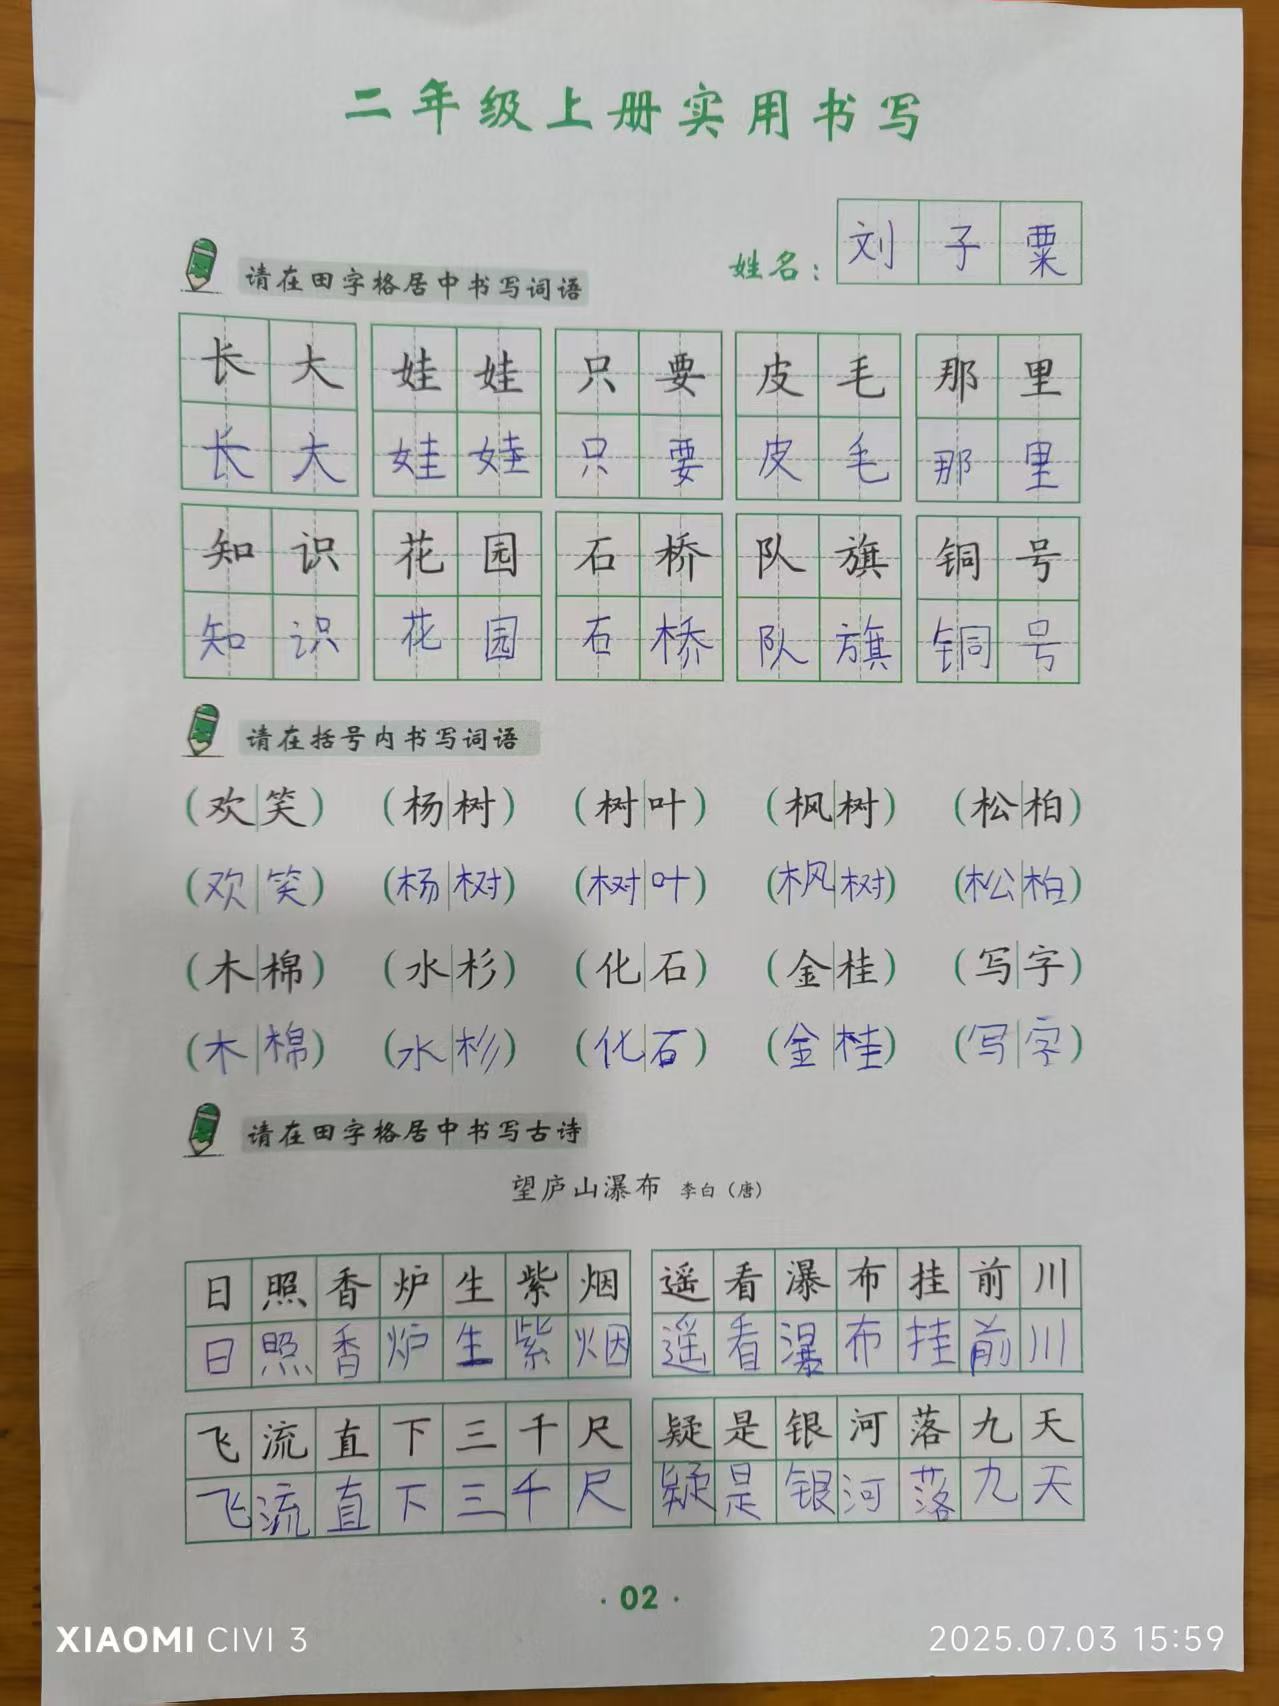 二年级上册实用书写
姓名：刘子粟
请在田字格居中书写词语
长大 娃娃 只要 皮毛 那里
长大 娃娃 只要 皮毛 那里
知识 花园 石桥 队旗 铜号
知识 花园 石桥 队旗 铜号
请在括号内书写词语
（欢笑）（杨树）（树叶）（枫树）（松柏）
（欢笑）（杨树）（树叶）（枫树）（松柏）
（木棉）（水杉）（化石）（金桂）（写字）
（木棉）（水杉）（化石）（金桂）（写字）
请在田字格居中书写古诗
望庐山瀑布 李白（唐）
日照香炉生紫烟 遥看瀑布挂前川
日照香炉生紫烟 遥看瀑布挂前川
飞流直下三千尺 疑是银河落九天
飞流直下三千尺 疑是银河落九天
·02·
XIAOMI CIVI 3
2025.07.03 15:59